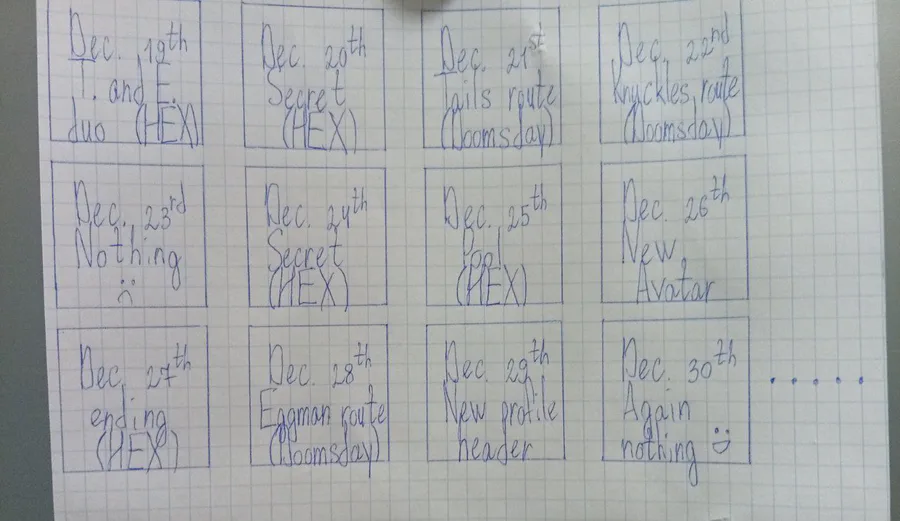 Dec. 19th
T. and E.
duo (HEX)
Dec. 20th
Secret
(HEX)
Dec. 21st
Tails route
(Doomsday)
Dec. 22nd
Knuckles route
(Doomsday)
Dec. 23rd
Nothing
:(
Dec. 24th
Secret
(HEX)
Dec. 25th
Pool
(HEX)
Dec. 26th
New
Avatar
Dec. 27th
ending
(HEX)
Dec. 28th
Eggman route
(Doomsday)
Dec. 29th
New profile
header
Dec. 30th
Again
nothing :D
......